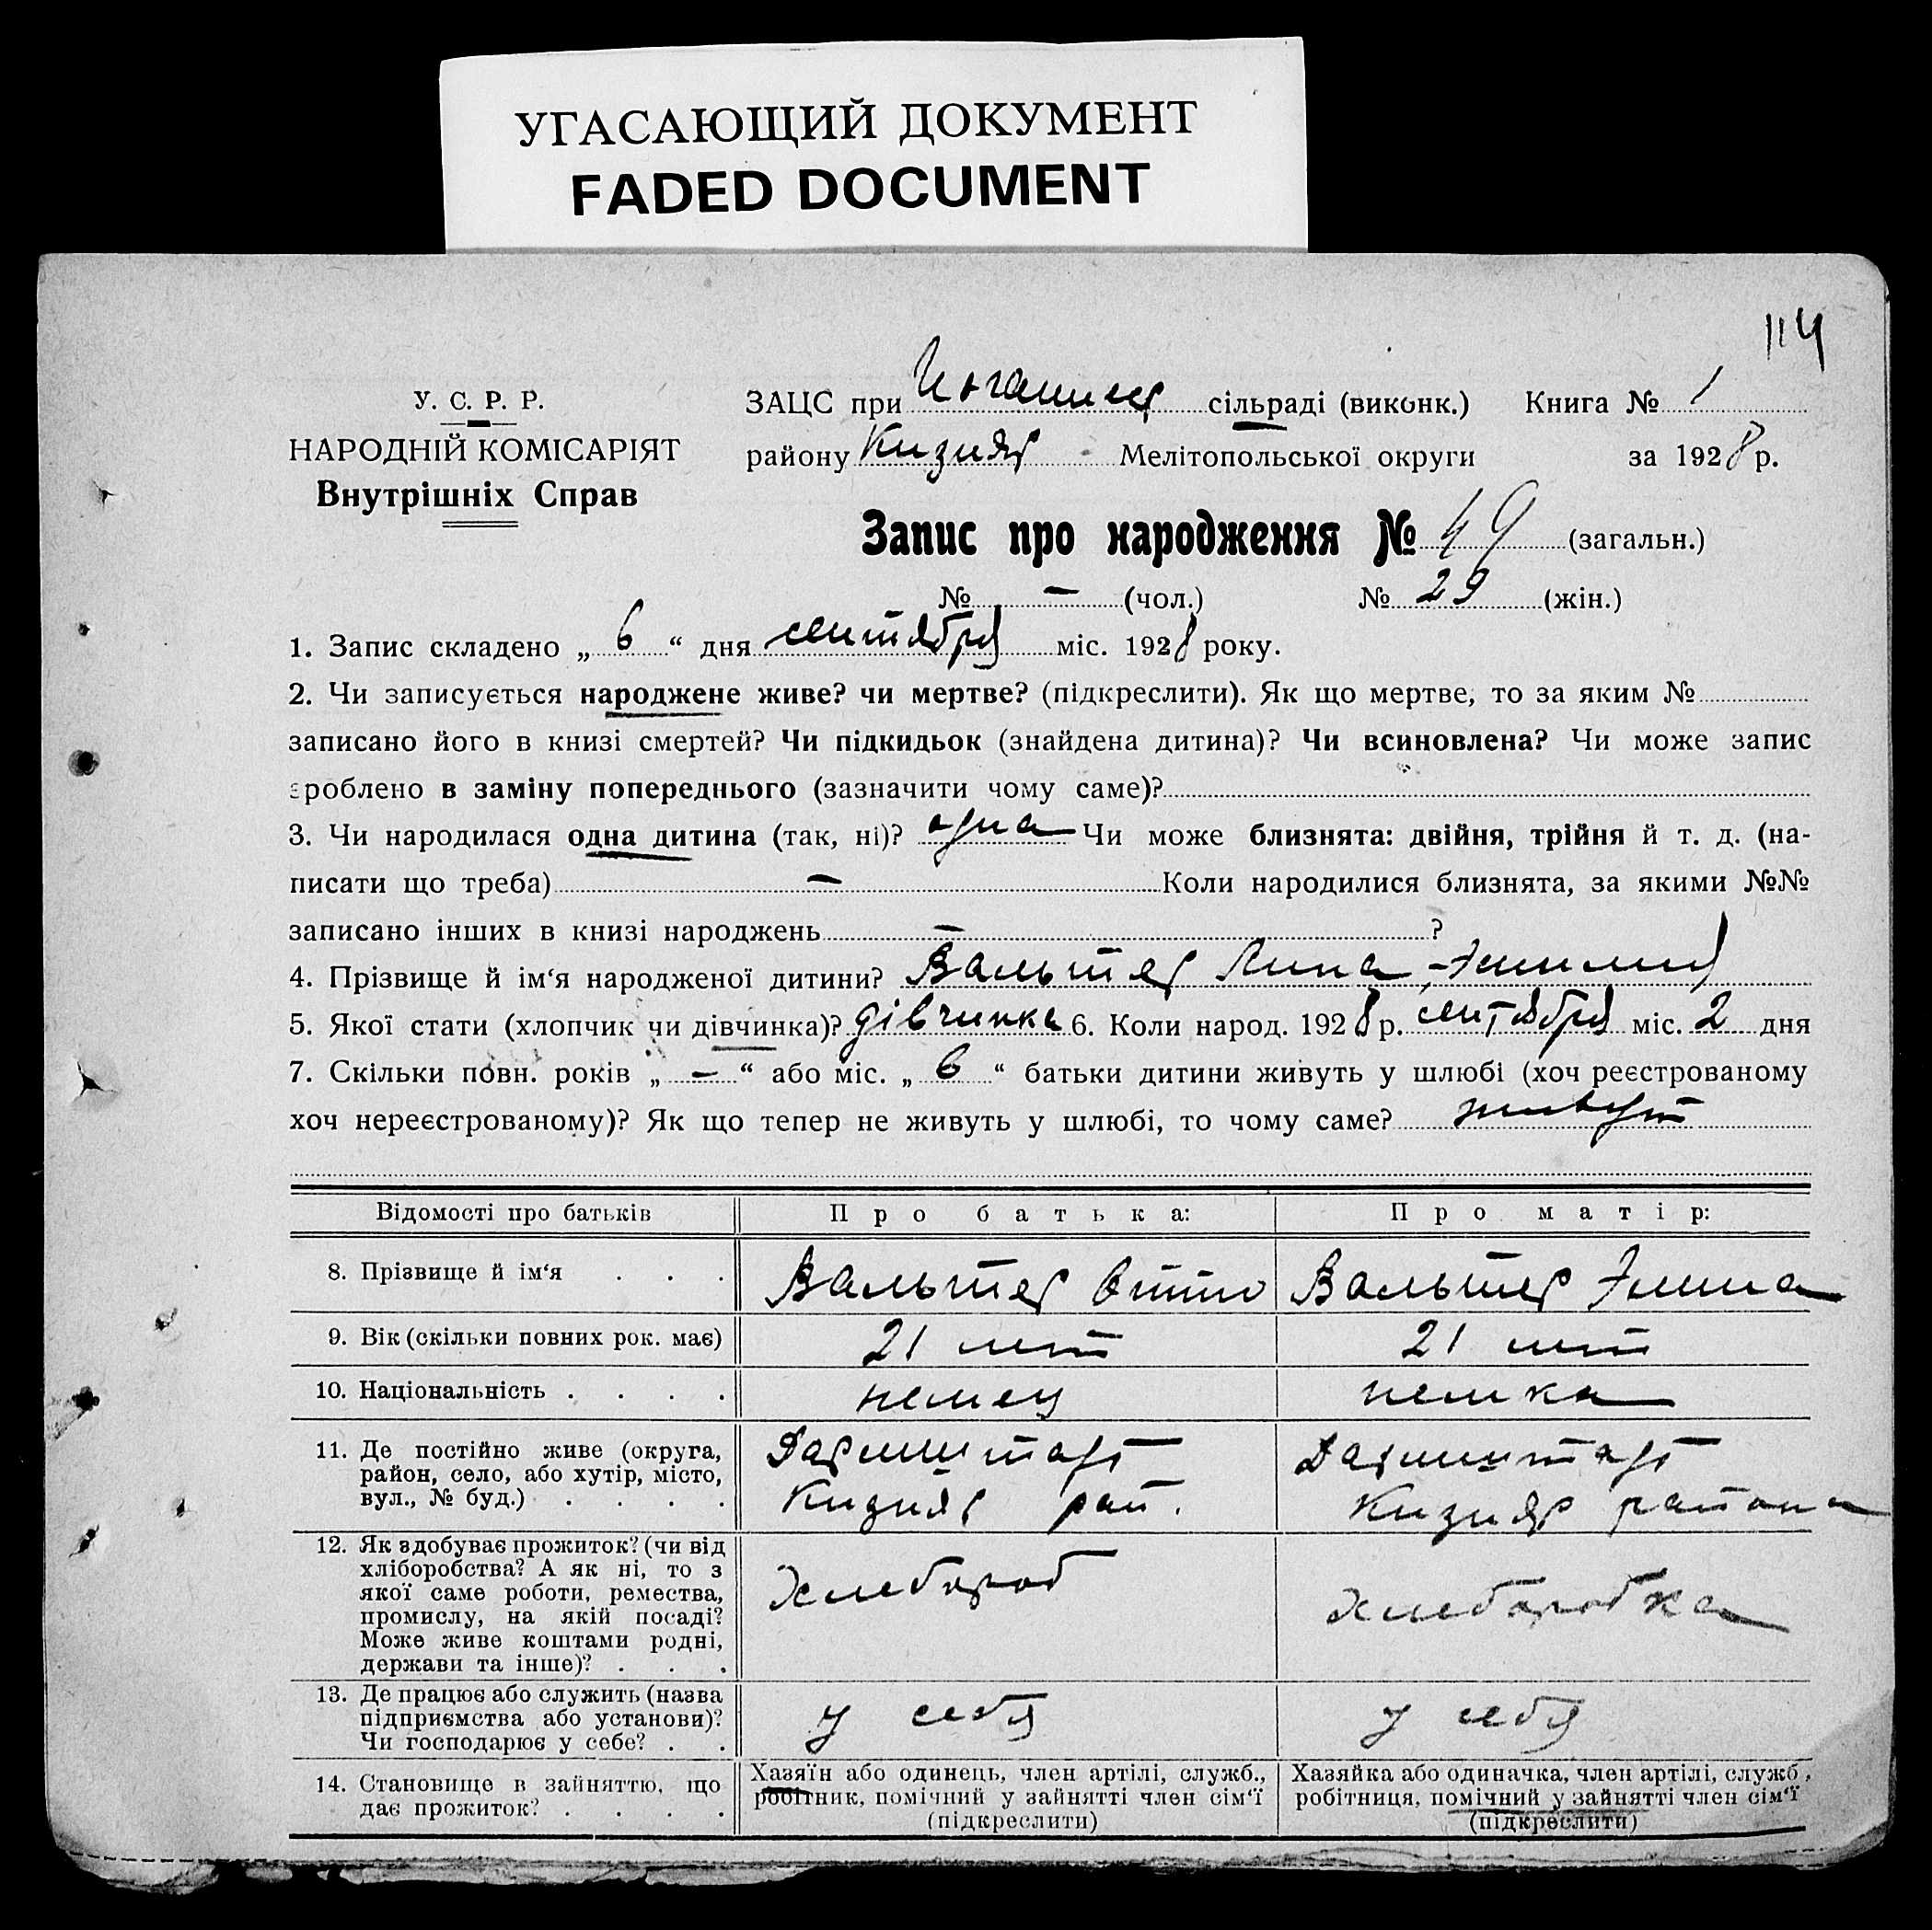 УГАСАЮЩИЙ ДОКУМЕНТ
FADED DOCUMENT
114
У. С. Р. Р.
НАРОДНІЙ КОМІСАРІЯТ
Внутрішніх Справ
ЗАЦС при сільраді (виконк.) Книга № 1
району Кизияр Мелітопольської округи за 1928 р.
Запис про народження № 49 (загальн.)
№ — (чол.) № 29 (жін.)
1. Запис складено „ 6 “ дня сентября міс. 1928 року.
2. Чи записується народжене живе? чи мертве? (підкреслити). Як що мертве, то за яким №
записано його в книзі смертей? Чи підкидьок (знайдена дитина)? Чи всиновлена? Чи може запис
зроблено в заміну попереднього (зазначити чому саме)?
3. Чи народилася одна дитина (так, ні)? одна Чи може близнята: двійня, трійня й т. д. (на-
писати що треба) — Коли народилися близнята, за якими №№
записано інших в книзі народжень — ?
4. Прізвище й ім‘я народженої дитини? Вальтер Анна-Эмилия
5. Якої стати (хлопчик чи дівчинка)? дівчинка 6. Коли народ. 1928 р. сентября міс. 2 дня
7. Скільки повн. років „ — “ або міс. „ 6 “ батьки дитини живуть у шлюбі (хоч реєстрованому
хоч нереєстрованому)? Як що тепер не живуть у шлюбі, то чому саме? живут
Відомості про батьків Про батька: Про матір:
8. Прізвище й ім‘я . . . Вальтер Отто Вальтер Эмма
9. Вік (скільки повних рок. має) 21 лет 21 лет
10. Національність . . . . немец немка
11. Де постійно живе (округа,
район, село, або хутір, місто,
вул., № буд.) . . . .
Дармштадт
Кизияр рай.
Дармштадт
Кизияр района
12. Як здобуває прожиток? (чи від
хліборобства? А як ні, то з
якої саме роботи, ремества,
промислу, на якій посаді?
Може живе коштами родні,
держави та інше)? . . .
Хлебороб
хлеборобка
13. Де працює або служить (назва
підприємства або установи)?
Чи господарює у себе? . .
у себя
у себя
14. Становище в зайняттю, що
дає прожиток? . . . .
Хазяїн або одинець, член артілі, служб.,
робітник, помічний у зайнятті член сім‘ї
(підкреслити)
Хазяйка або одиначка, член артілі, служб.,
робітниця, помічний у зайнятті член сім‘ї
(підкреслити)